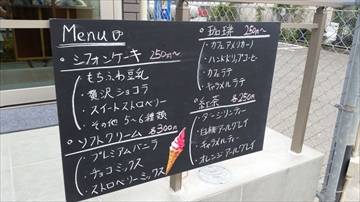 Menu
○シフォンケーキ 250円〜
・もちふわ豆乳
・贅沢ショコラ
・スイートストロベリー
・その他 5〜6種類
○ソフトクリーム 各300円
・プレミアムバニラ
・チョコミックス
・ストロベリーミックス
○珈琲 250円〜
・カフェアメリカーノ
・ハンドドリップコーヒー
・カフェラテ
・キャラメルラテ
○紅茶 各250円
・ダージリンティー
・アールグレイ
・キャラメルティー
・オレンジアールグレイ